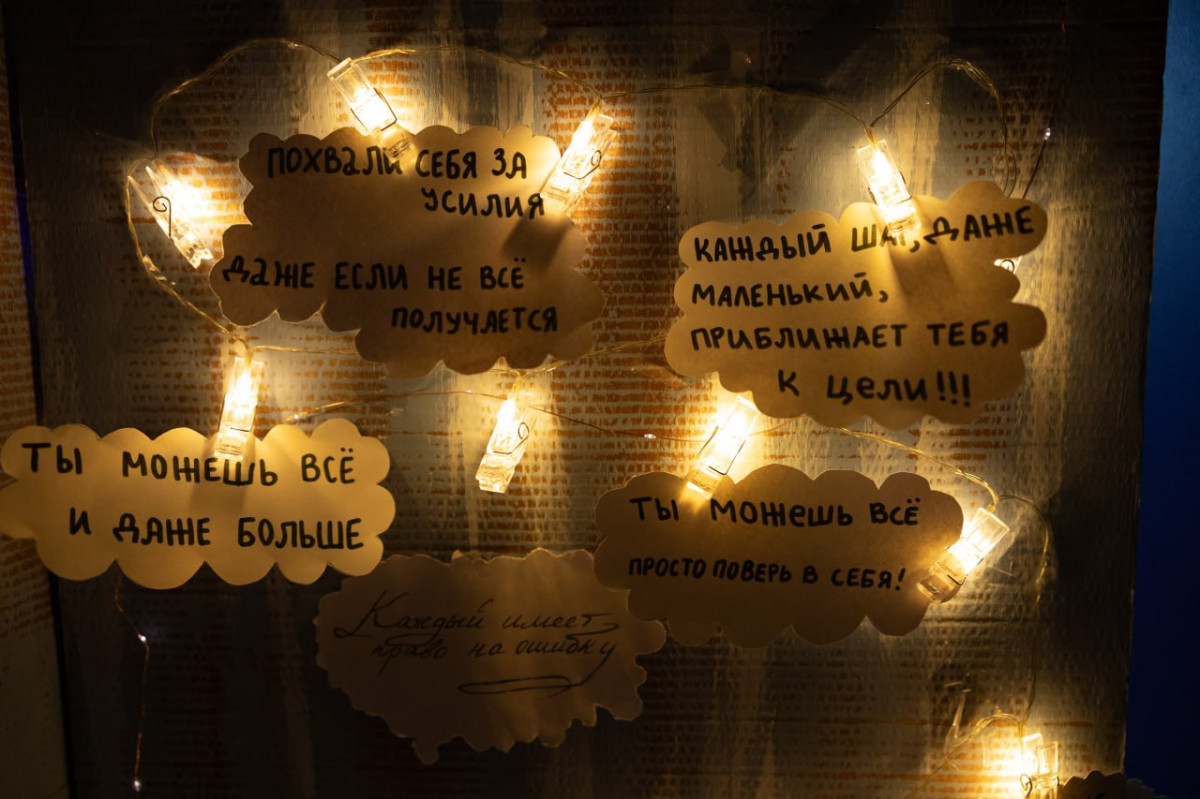 ПОХВАЛИ СЕБЯ ЗА
УСИЛИЯ
ДАЖЕ ЕСЛИ НЕ ВСЁ
ПОЛУЧАЕТСЯ
КАЖДЫЙ ШАГ, ДАЖЕ
МАЛЕНЬКИЙ,
ПРИБЛИЖАЕТ ТЕБЯ
К ЦЕЛИ!!!
ТЫ МОЖЕШЬ ВСЁ
И ДАЖЕ БОЛЬШЕ
ТЫ МОЖЕШЬ ВСЁ
ПРОСТО ПОВЕРЬ В СЕБЯ!
Каждый имеет
право на ошибку